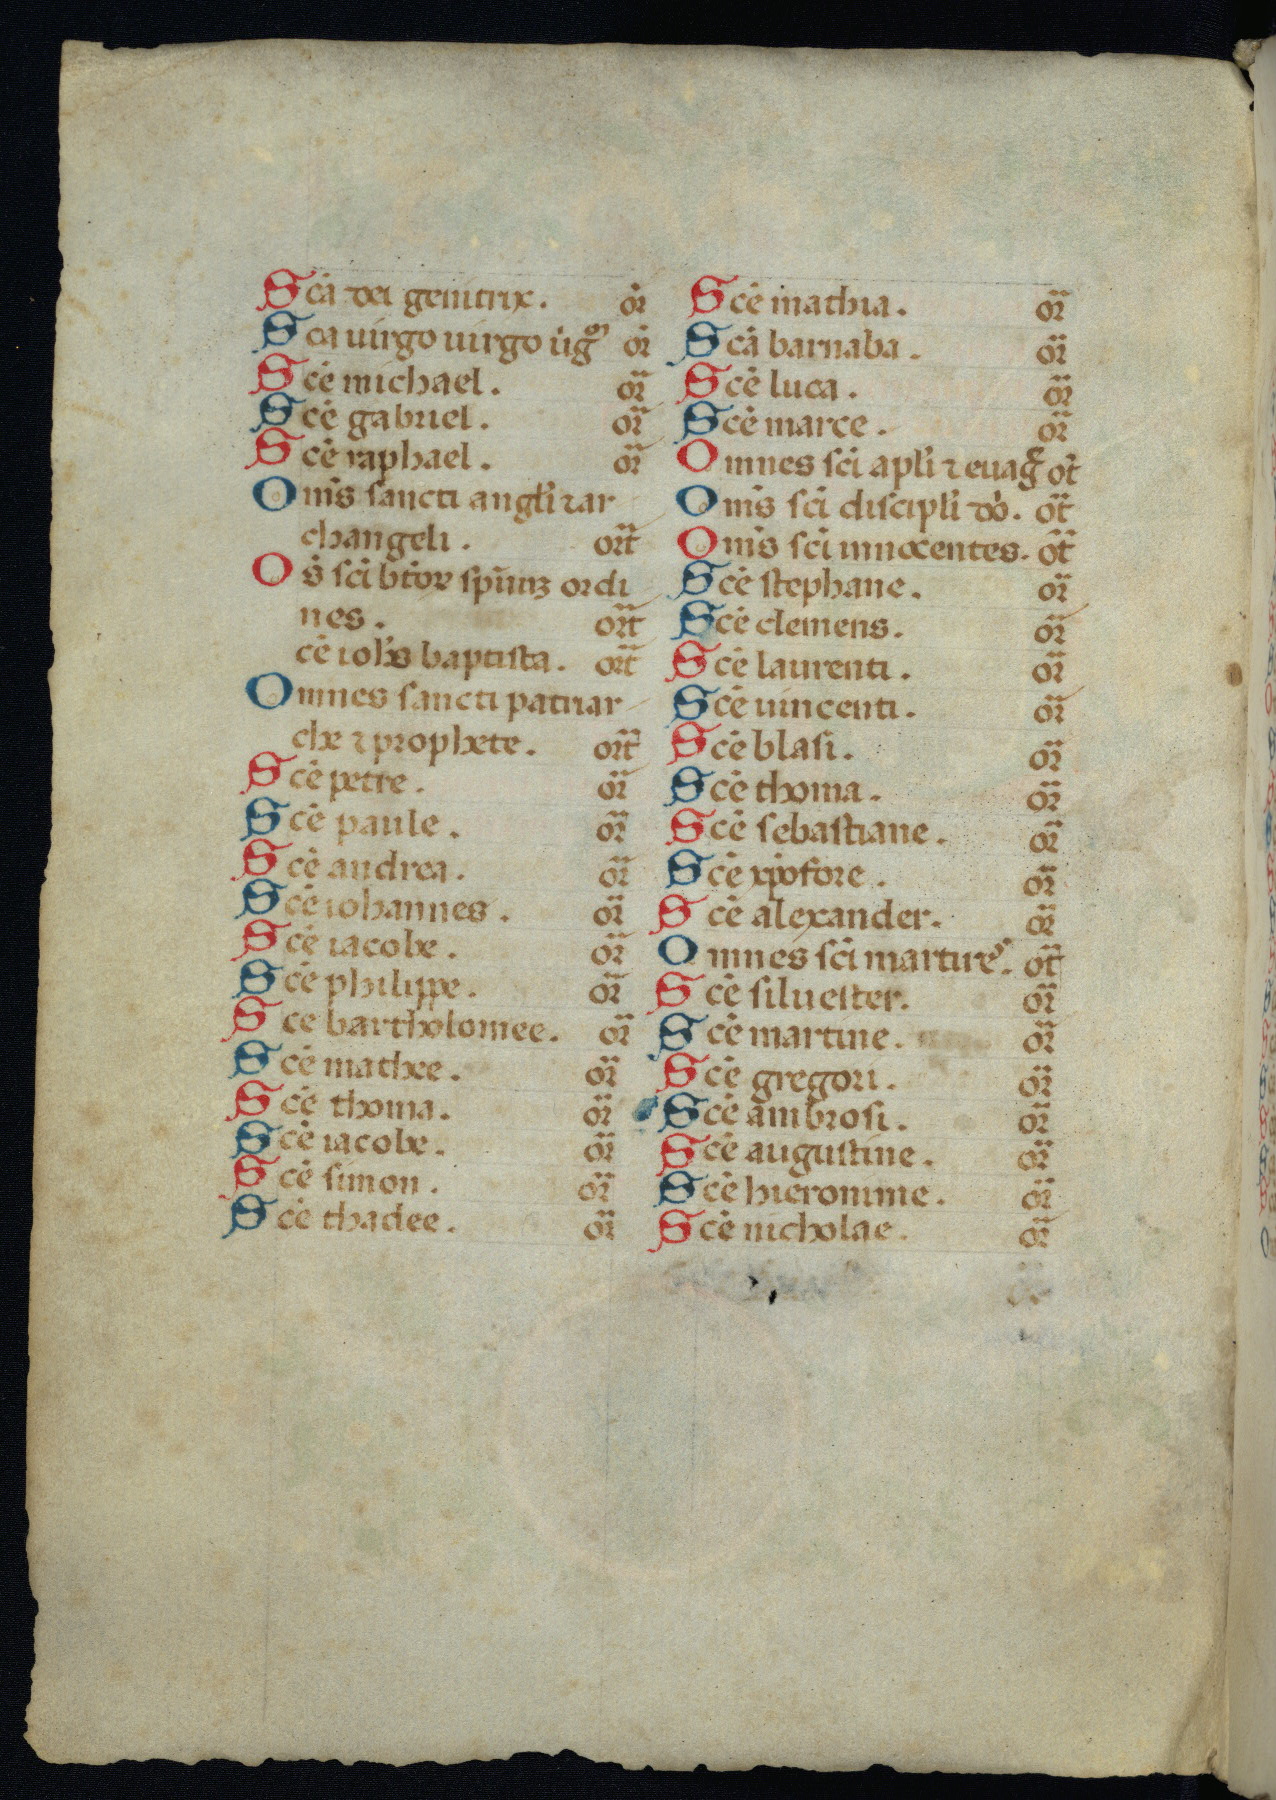 Scā dei genitrix. or̄
Sca uirgo uirgo u̇ig̊ᵐ or̄
Scē michael. or̄
Scē gabriel. or̄
Scē raphael. or̄
Om̄s sancti anglī ⁊ ar
changeli. or̄t
Os̄ sc̄i bt̄oꝝ sp̄uuꝫ ordi
nes. or̄t
cē ioh̄s baptista. or̄t
Omnes sancti patriar
che ⁊ prophete. or̄t
Scē petre. or̄
Scē paule. or̄
Scē andrea. or̄
Scē iohannes. or̄
Scē iacobe. or̄
Scē philippe. or̄
Sce bartholomee. or̄
Scē mathee. or̄
Scē thoma. or̄
Scē iacobe. or̄
Scē simon. or̄
Scē thadee. or̄
Scē mathia. or̄
Scā barnaba. or̄
Scē luca. or̄
Scē marce. or̄
Omnes sc̄i apl̄i ⁊ euāg or̄t
Om̄s sc̄i discipl̄i dō. or̄t
Om̄s sc̄i innocentes. or̄t
Scē stephane. or̄
Scē clemens. or̄
Scē laurenti. or̄
Scē uincenti. or̄
Scē blasi. or̄
Scē thoma. or̄
Scē sebastiane. or̄
Scē xp̄ofore. or̄
Scē alexander. or̄
Omnes sc̄i martireˢ. or̄t
Scē siluester. or̄
Scē martine. or̄
Scē gregori. or̄
Scē ambrosi. or̄
Scē augustine. or̄
Scē hieronime. or̄
Scē nicholae. or̄